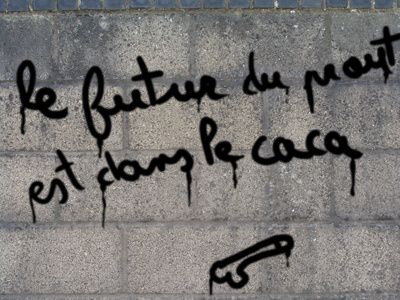 le futur du prout
est dans le caca